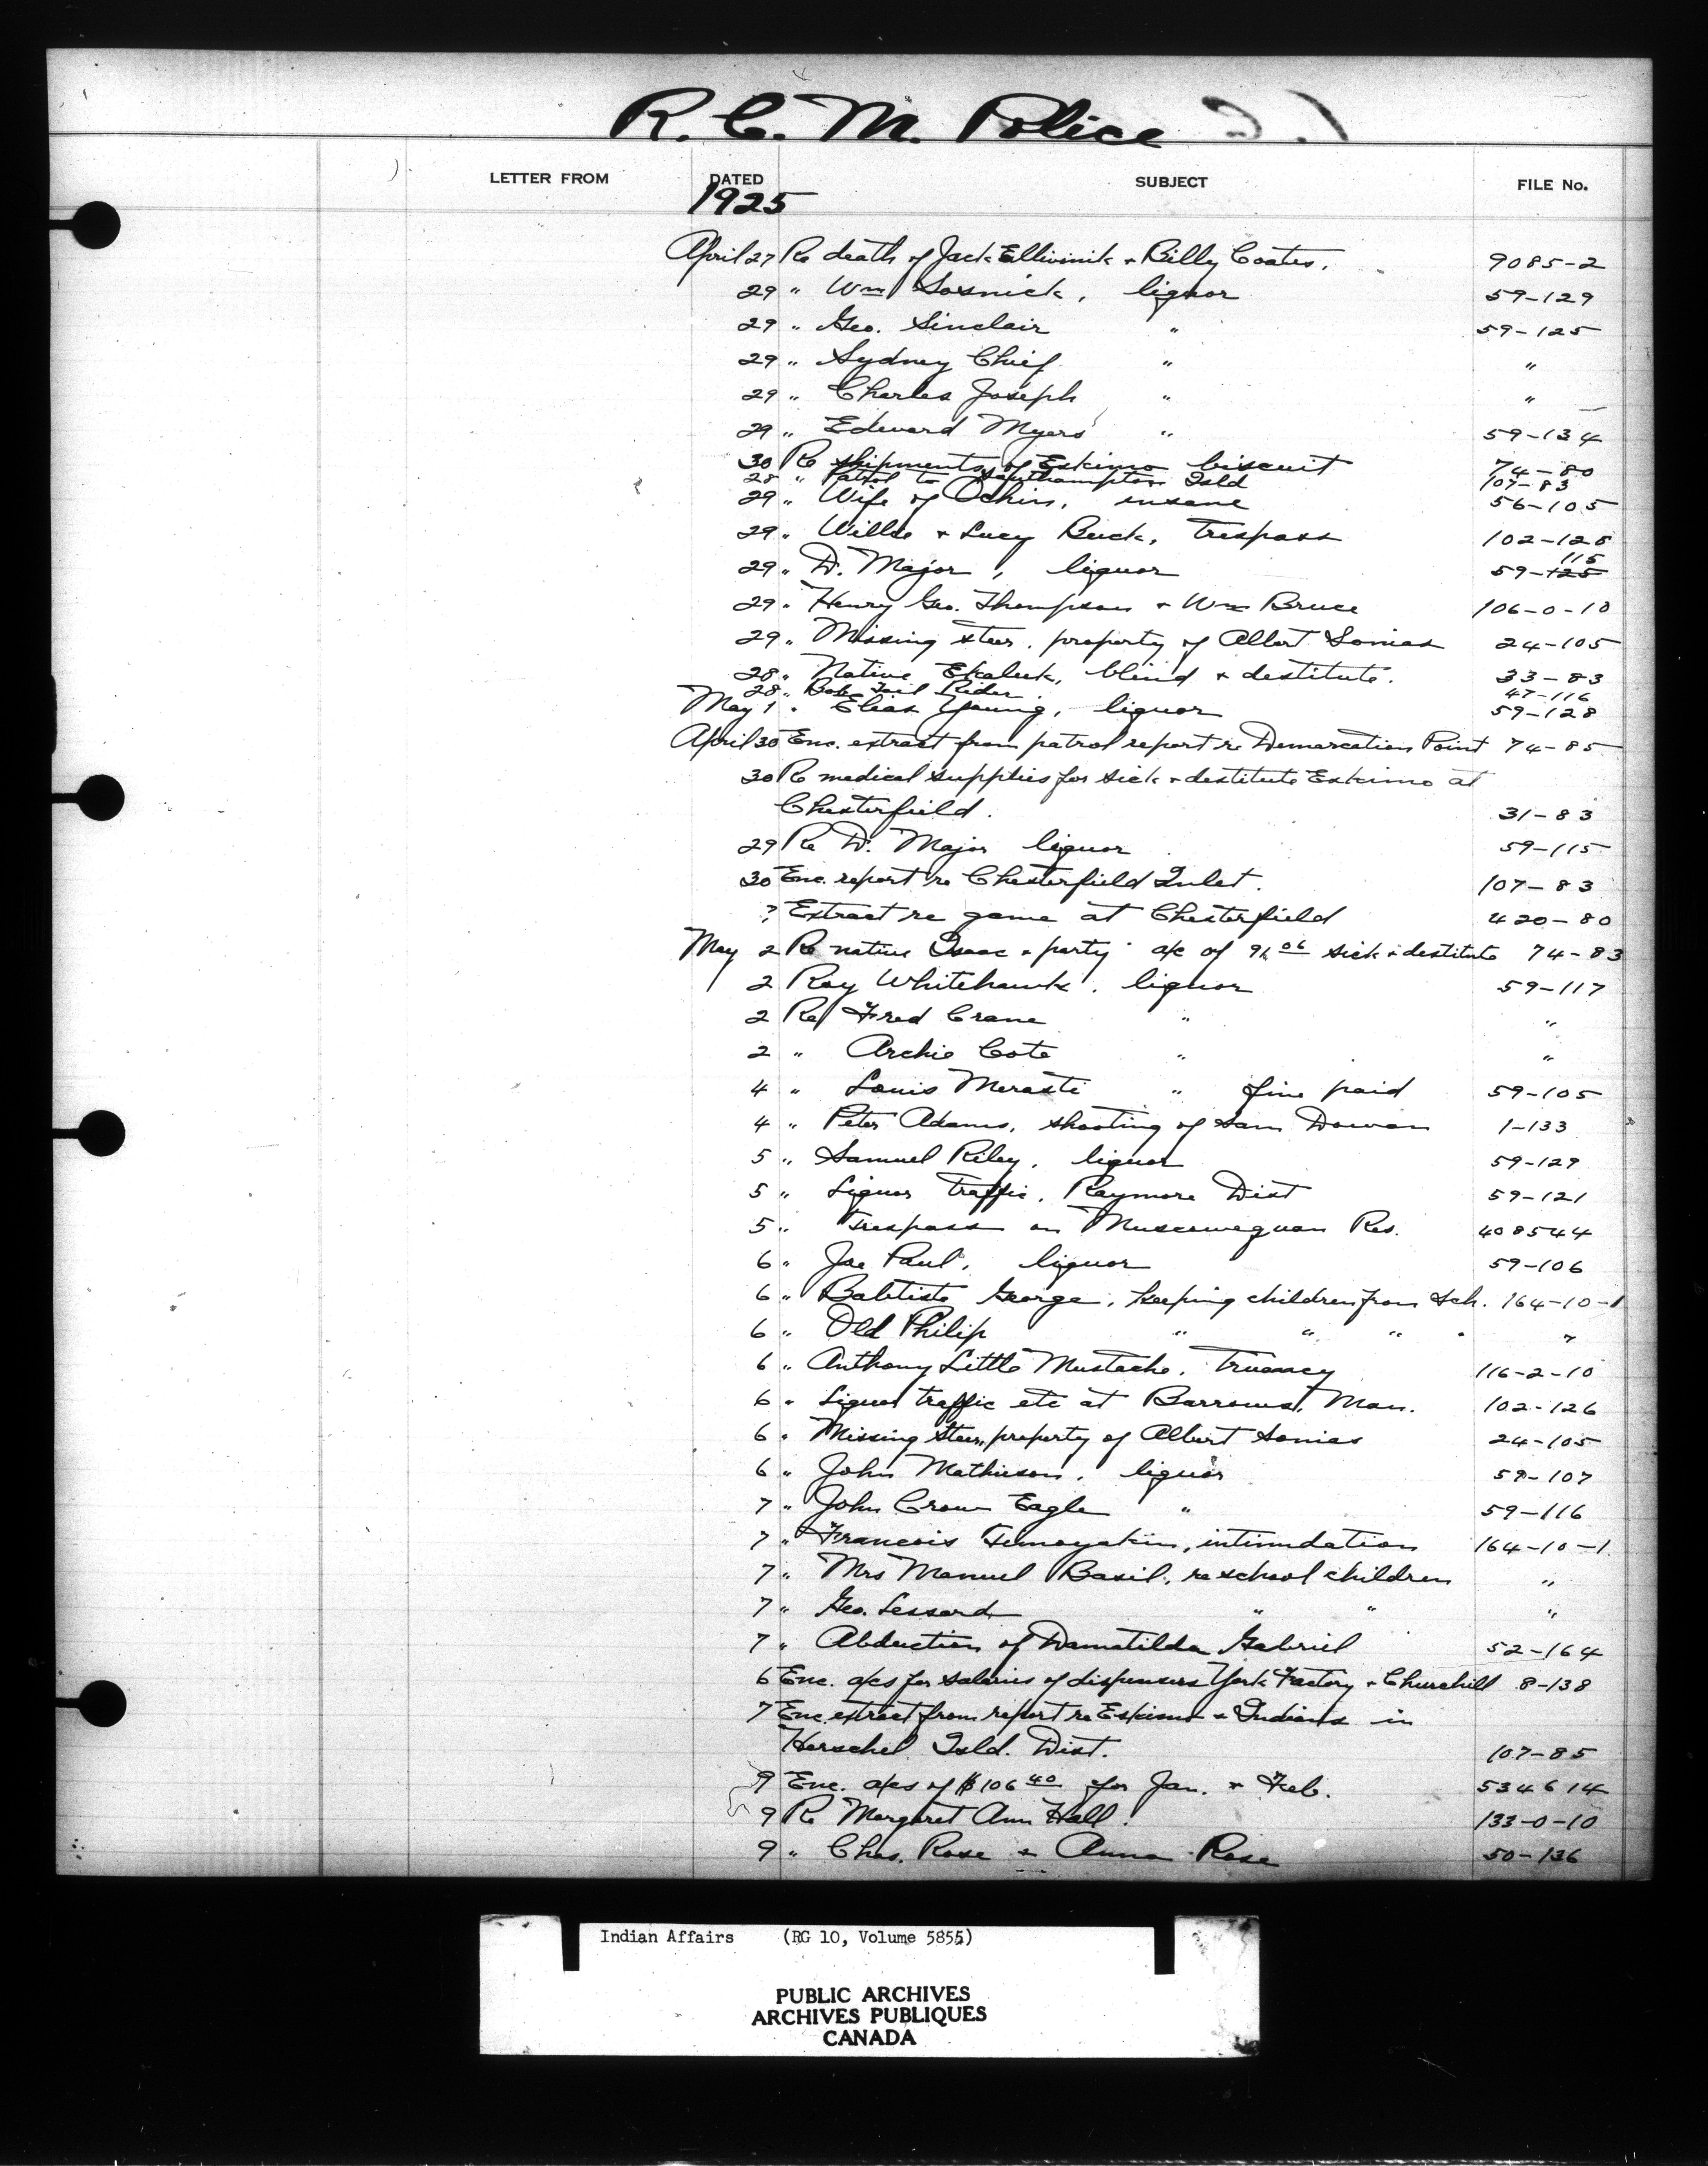 R. C. M. Police
LETTER FROM DATED SUBJECT FILE No.
1925
April 27 Re death of Jack Ellivinik + Billy Coates. 9085-2
29 " Wm Sosnick, liquor 59-129
29 " Geo. Sinclair " 59-125
29 " Sydney Chief " "
29 " Charles Joseph " "
29 " Edward Myers " 59-134
30 Re shipments of Eskimo biscuit 74-80
28 " Patrol to Southampton Isld 107-83
29 " Wife of Ochin, insane 56-105
29 " Willie + Lucy Buck, trespass 102-128
29 " D. Major, liquor 59-125 115
29 " Henry Geo. Thompson + Wm Bruce 106-0-10
29 " Missing steer, property of Albert Sonias 24-105
28 " Native Ekaluk, blind + destitute. 33-83
28 " Bob Tail Rider 47-116
May 1 " Elias Young, liquor 59-128
April 30 Enc. extract from patrol report re Demarcation Point 74-85
30 Re medical supplies for sick + destitute Eskimo at
Chesterfield. 31-83
29 Re D. Major liquor 59-115
30 Enc. report re Chesterfield Inlet. 107-83
? Extract re game at Chesterfield 420-80
May 2 Re native Isaac + party a/c of sick + destitute 74-83
2 Roy Whitehawk, liquor 59-117
2 Re Fred Crane " "
2 " Archie Cote " "
4 " Louis Merasti " fine paid 59-105
4 " Peter Adams, shooting of Sam Dowan 1-133
5 " Samuel Riley, liquor 59-129
5 " Liquor traffic, Raymore Dist 59-121
5 " Trespass on Muscowequan Res. 408544
6 " Joe Paul, liquor 59-106
6 " Babtiste George, keeping children from Sch. 164-10-1
6 " Old Philip " " " " "
6 " Anthony Little Mustache, Truancy 116-2-10
6 " Liquor traffic etc at Barrows, Man. 102-126
6 " Missing steer, property of Albert Sonias 24-105
6 " John Mathieson, liquor 59-107
7 " John Crow Eagle " 59-116
7 " Francois intimidation 164-10-1
7 " Mrs Manuel Basil, re school children "
7 " Geo. Lessard " " "
7 " Abduction of Damatilda Gabriel 52-164
6 Enc. a/cs for salaries of dispensers York Factory + Churchill 8-138
7 Enc. extract from report re Eskimo + Indians in
Herschel Isld. Dist. 107-85
9 Enc. a/cs of $106 40 for Jan. + Feb. 534614
9 Re Margaret Ann Hall. 133-0-10
9 " Chas. Rose + Anna Rose 50-136
Indian Affairs (RG 10, Volume 5855)
PUBLIC ARCHIVES
ARCHIVES PUBLIQUES
CANADA